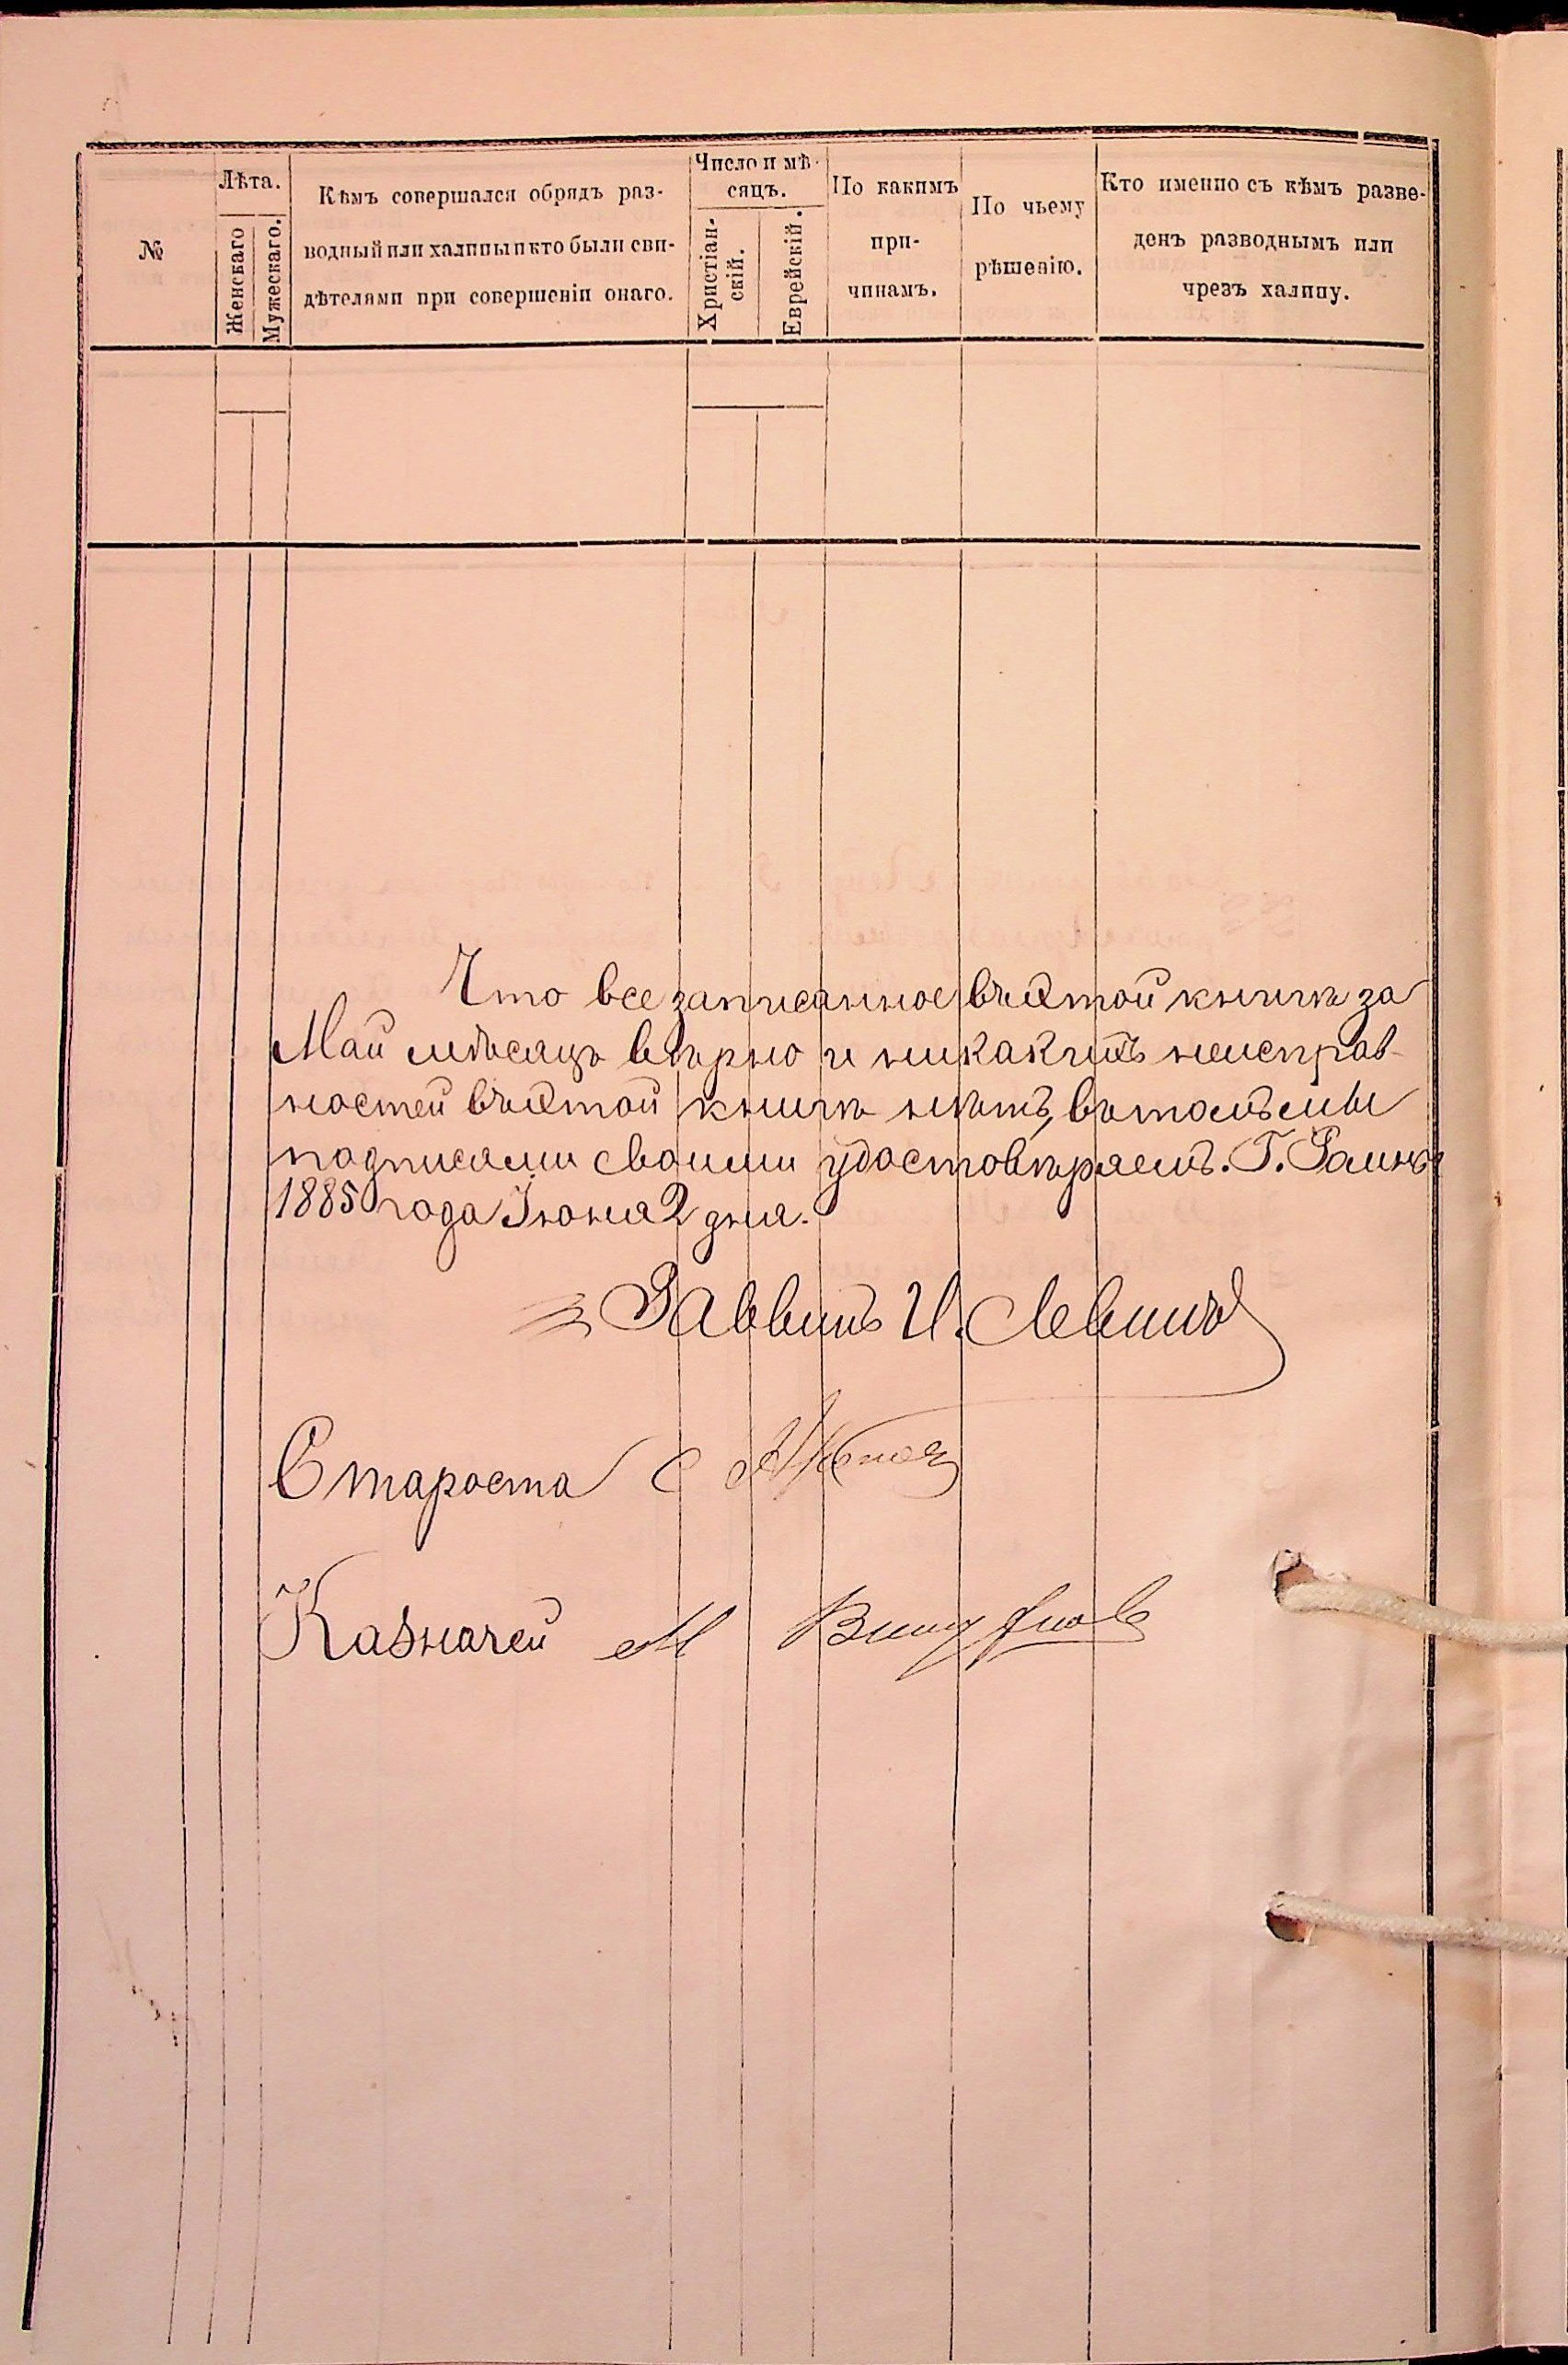 №
Лѣта.
Женскаго
Мужескаго.
Кѣмъ совершался обрядъ раз-
водный или халицы и кто были сви-
дѣтелями при совершеніи онаго.
Число и мѣ-
сяцъ.
Христіан-
скій.
Еврейскій.
По какимъ
при-
чинамъ.
По чьему
рѣшенію.
Кто именно съ кѣмъ разве-
денъ разводнымъ или
чрезъ халицу.
Что все записанное въ этой книгѣ за
Май мѣсяцъ вѣрно и никакихъ неисправ-
ностей въ этой книгѣ нѣтъ, въ томъ мы
подписями своими удостовѣряемъ. Г. Ромны
1885 года Іюня 2 дня.
Раввинъ И. Левинъ
Староста С
Казначей М